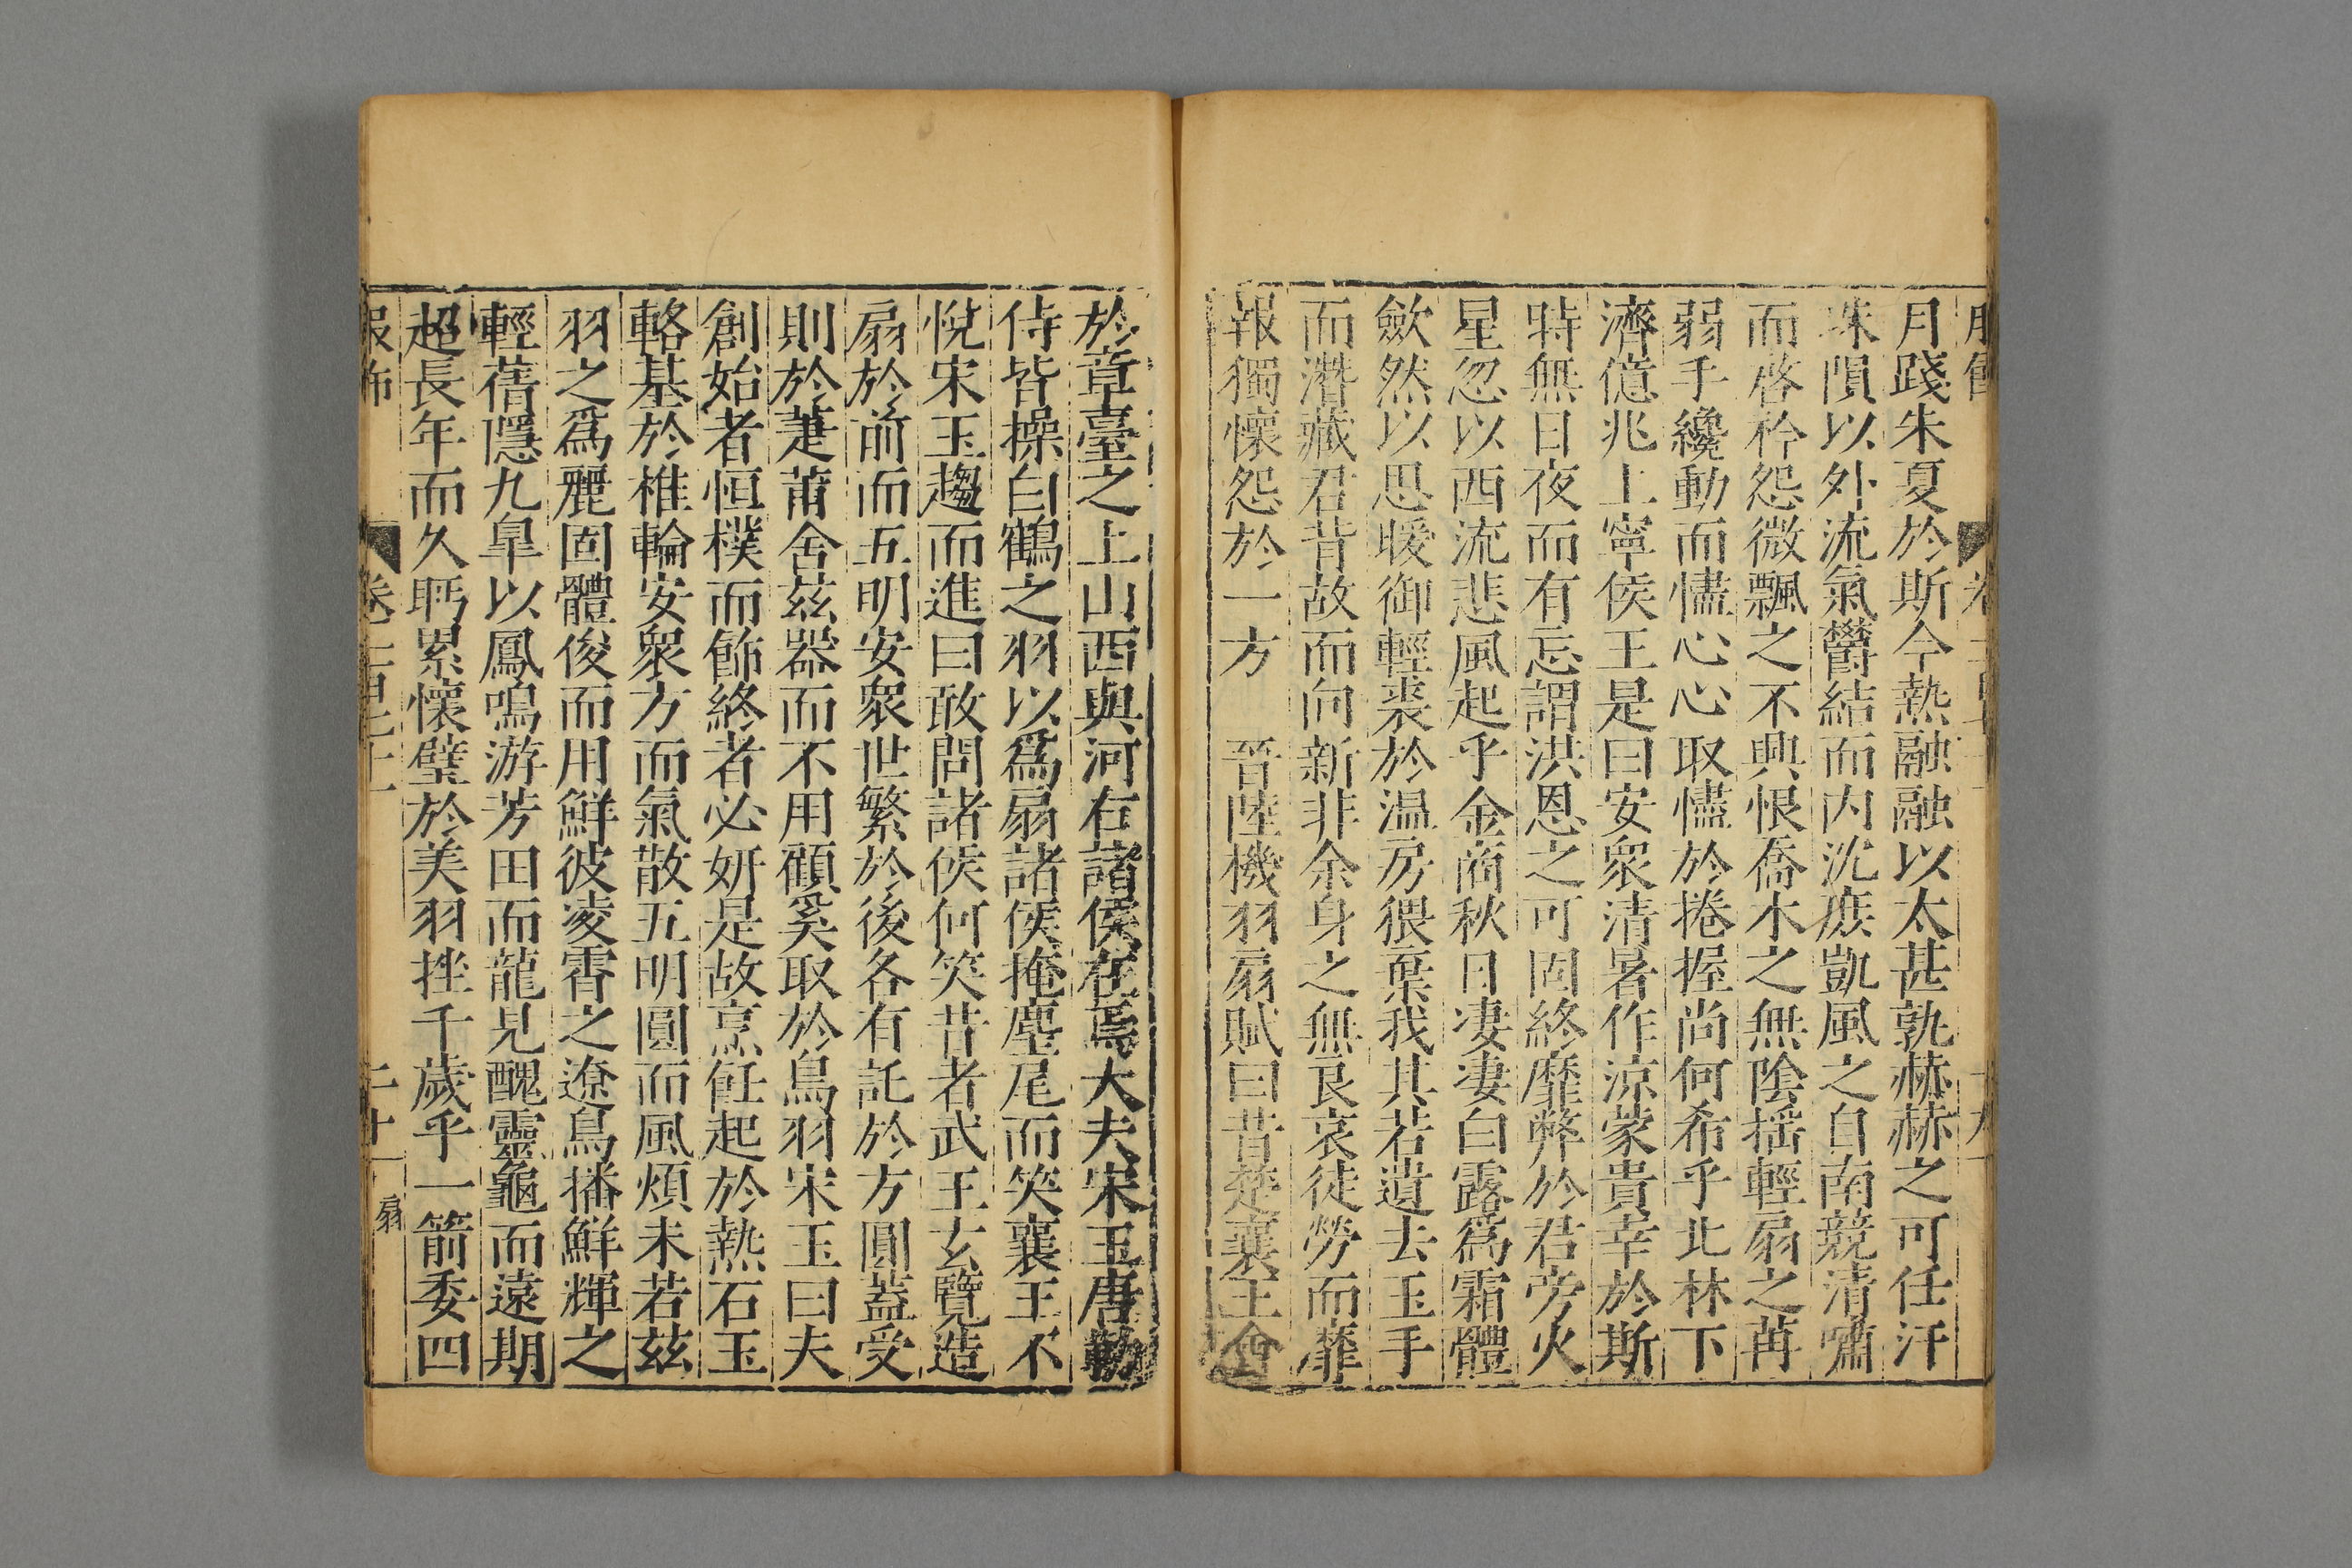 月踐朱夏於斯今熱融融以太甚孰赫赫之可任汗
珠隕以外流氣欝結而内沈㢈凱風之自南競清嘯
而啓衿怨微飄之不興恨喬木之無陰揺輕扇之苒
弱手纔動而懤心心取懤於捲握尚何希乎北林下
濟億兆上寧侯王是曰安衆清暑作涼蒙貴幸於斯
時無日夜而有忘謂洪恩之可固終靡弊於君旁火
星忽以西流悲風起乎金商秋日凄凄白露爲霜體
歛然以思暖御輕裘於温房猥棄我其若遺去玉手
而潛藏君背故而向新非余身之無良哀徒勞而靡
報獨懷怨於一方　晉陸機羽扇賦曰昔楚襄王會
於章臺之上山西與河右諸侯在焉大夫宋玉唐勒
侍皆操白鶴之羽以爲扇諸侯掩麈尾而笑襄王不
悅宋玉趨而進曰敢問諸侯何笑昔者武王玄覽造
扇於前而五明安衆世繁於後各有託於方圓蓋受
則於萐莆舍兹器而不用顧奚取於鳥羽宋玉曰夫
創始者恒樸而飾終者必妍是故烹飪起於熱石玉
輅基於椎輪安衆方而氣散五明圓而風煩未若兹
羽之爲麗固體俊而用鮮彼凌霄之遼鳥播鮮輝之
輕蒨隱九臯以鳳鳴游芳田而龍見醜靈龜而遠期
超長年而久眄累懷璧於美羽挫千歲乎一箭委四
服飾　卷二百七十　二十一　扇